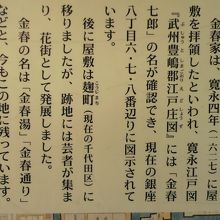 金春家は、寛永四年(一六二七)に屋
敷を拝領したといわれ、寛永江戸図
『武州豊嶋郡江戸庄図』には「金春
七郎」の名が確認でき、現在の銀座
八丁目六・七・八番辺りに図示されて
います。
後に屋敷は麹町(現在の千代田区)に
移りましたが、跡地には芸者が集ま
り、花街として発展しました。
金春の名は「金春湯」「金春通り」
など、今もこの地に残っています。